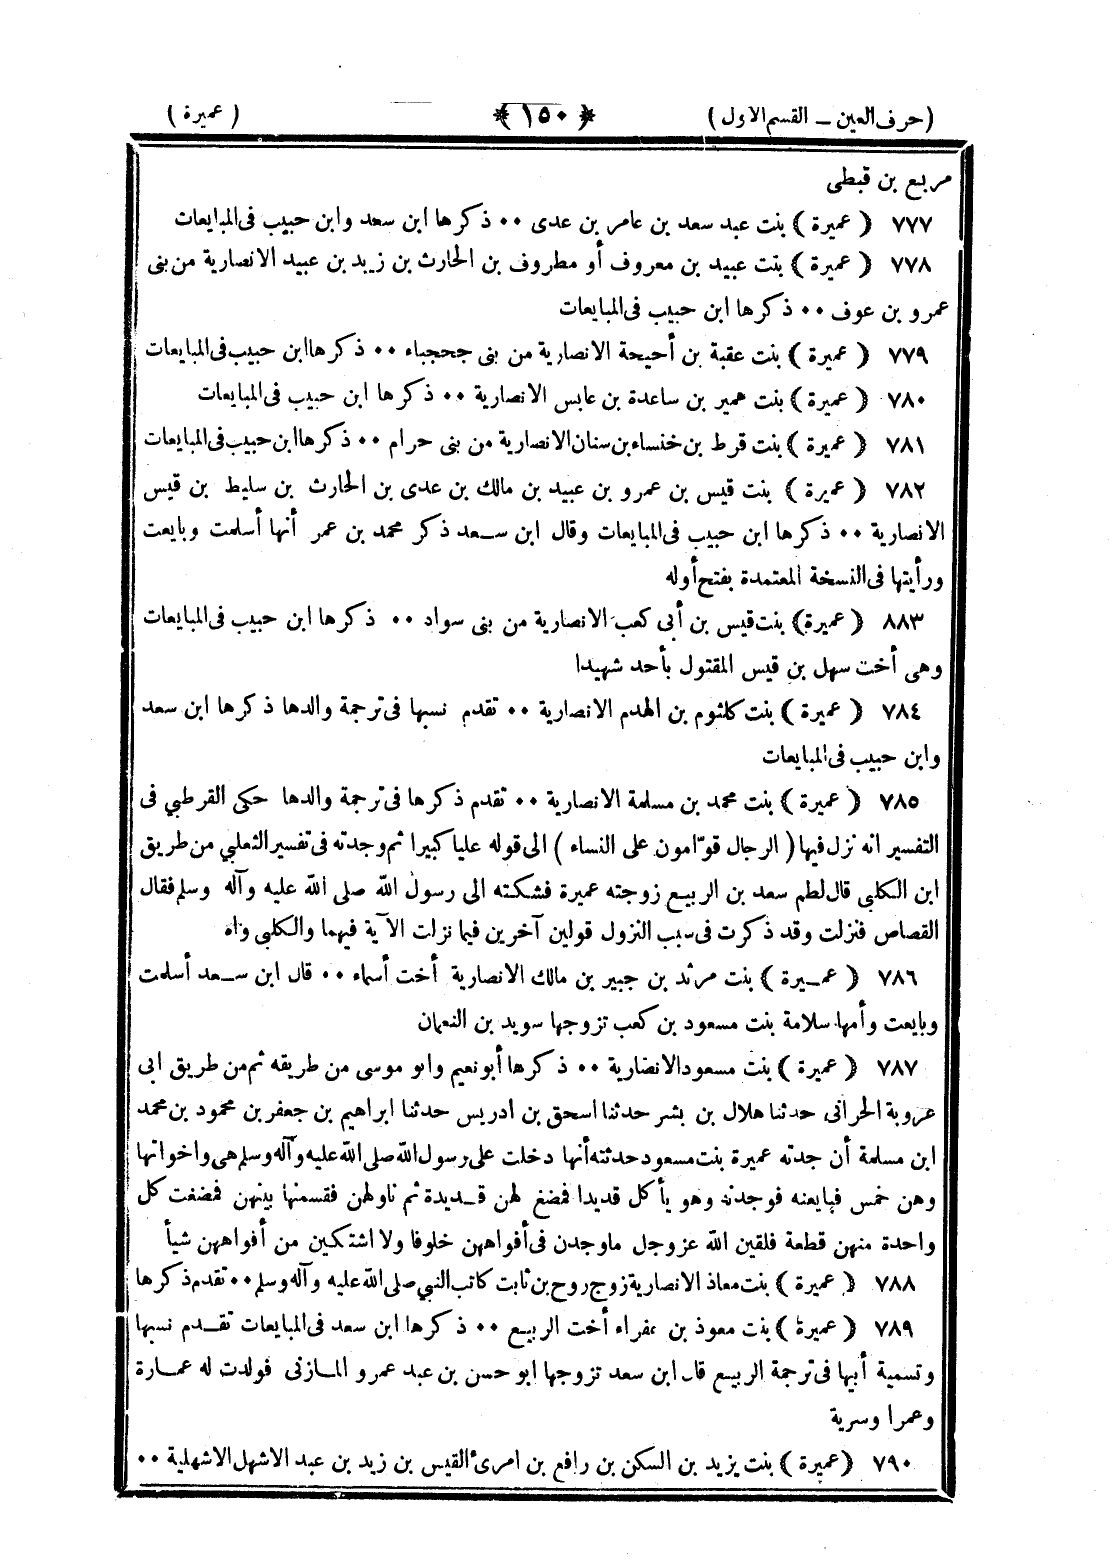 ( حرف العين – القسم الاول )
﴿ ١٥٠ ﴾
( عميرة )
مربع بن قبطى
٧٧٧ ﴿ عميرة ﴾ بنت عبد سعد بن عامر بن عدى ٠٠ ذكرها ابن سعد وابن حبيب فى المبايعات
٧٧٨ ﴿ عميرة ﴾ بنت عبيد بن معروف أو مطروف بن الحارث بن زيد بن عبيد الانصارية من بنى
عمرو بن عوف ٠٠ ذكرها ابن حبيب فى المبايعات
٧٧٩ ﴿ عميرة ﴾ بنت عقبة بن أحيحة الانصارية من بنى جحجباء ٠٠ ذكرها ابن حبيب فى المبايعات
٧٨٠ ﴿ عميرة ﴾ بنت همير بن ساعدة بن عابس الانصارية ٠٠ ذكرها ابن حبيب فى المبايعات
٧٨١ ﴿ عميرة ﴾ بنت قرط بن خنساء بن سنان الانصارية من بنى حرام ٠٠ ذكرها ابن حبيب فى المبايعات
٧٨٢ ﴿ عميرة ﴾ بنت قيس بن عمرو بن عبيد بن مالك بن عدى بن الحارث بن سليط بن قيس
الانصارية ٠٠ ذكرها ابن حبيب فى المبايعات وقال ابن سعد ذكر محمد بن عمر أنها أسلمت وبايعت
ورأيتها فى النسخة المعتمدة بفتح أوله
٨٨٣ ﴿ عميرة ﴾ بنت قيس بن أبى كعب الانصارية من بنى سواد ٠٠ ذكرها ابن حبيب فى المبايعات
وهى أخت سهل بن قيس المقتول بأحد شهيدا
٧٨٤ ﴿ عميرة ﴾ بنت كلثوم بن الهدم الانصارية ٠٠ تقدم نسبها فى ترجمة والدها ذكرها ابن سعد
وابن حبيب فى المبايعات
٧٨٥ ﴿ عميرة ﴾ بنت محمد بن مسلمة الانصارية ٠٠ تقدم ذكرها فى ترجمة والدها حكى القرطبي فى
التفسير انه نزل فيها ( الرجال قوّامون على النساء ) الى قوله عليا كبيرا ثم وجدته فى تفسير الثعلبي من طريق
ابن الكلبى قال لطم سعد بن الربيع زوجته عميرة فشكته الى رسول الله صلى الله عليه وآله وسلم فقال
القصاص فنزلت وقد ذكرت فى سبب النزول قولين آخرين فيما نزلت الآية فيهما والكلبى واه
٧٨٦ ﴿ عميرة ﴾ بنت مرثد بن جبير بن مالك الانصارية أخت أسماء ٠٠ قال ابن سعد أسلمت
وبايعت وأمها سلامة بنت مسعود بن كعب تزوجها سويد بن النعمان
٧٨٧ ﴿ عميرة ﴾ بنت مسعود الانصارية ٠٠ ذكرها أبو نعيم وابو موسى من طريقه ثم من طريق ابى
عروبة الحرانى حدثنا هلال بن بشر حدثنا اسحق بن ادريس حدثنا ابراهيم بن جعفر بن محمود بن محمد
ابن مسلمة أن جدته عميرة بنت مسعود حدثته أنها دخلت على رسول الله صلى الله عليه وآله وسلم هى واخواتها
وهن خمس فبايعنه فوجدنه وهو يأكل قديدا فمضغ لهن قديدة ثم ناولهن فقسمنها بينهن فمضغت كل
واحدة منهن قطعة فلقين الله عز وجل ما وجدن فى أفواههن خلوفا ولا اشتكين من أفواههن شيأ
٧٨٨ ﴿ عميرة ﴾ بنت معاذ الانصارية زوج روح بن ثابت كاتب النبي صلى الله عليه وآله وسلم ٠٠ تقدم ذكرها
٧٨٩ ﴿ عميرة ﴾ بنت معوذ بن عفراء أخت الربيع ٠٠ ذكرها ابن سعد فى المبايعات تقدم نسبها
وتسمية أبيها فى ترجمة الربيع قال ابن سعد تزوجها ابو حسن بن عبد عمرو المازنى فولدت له عمارة
وعمرا وسرية
٧٩٠ ﴿ عميرة ﴾ بنت يزيد بن السكن بن رافع بن امرىء القيس بن زيد بن عبد الاشهل الاشهلية ٠٠